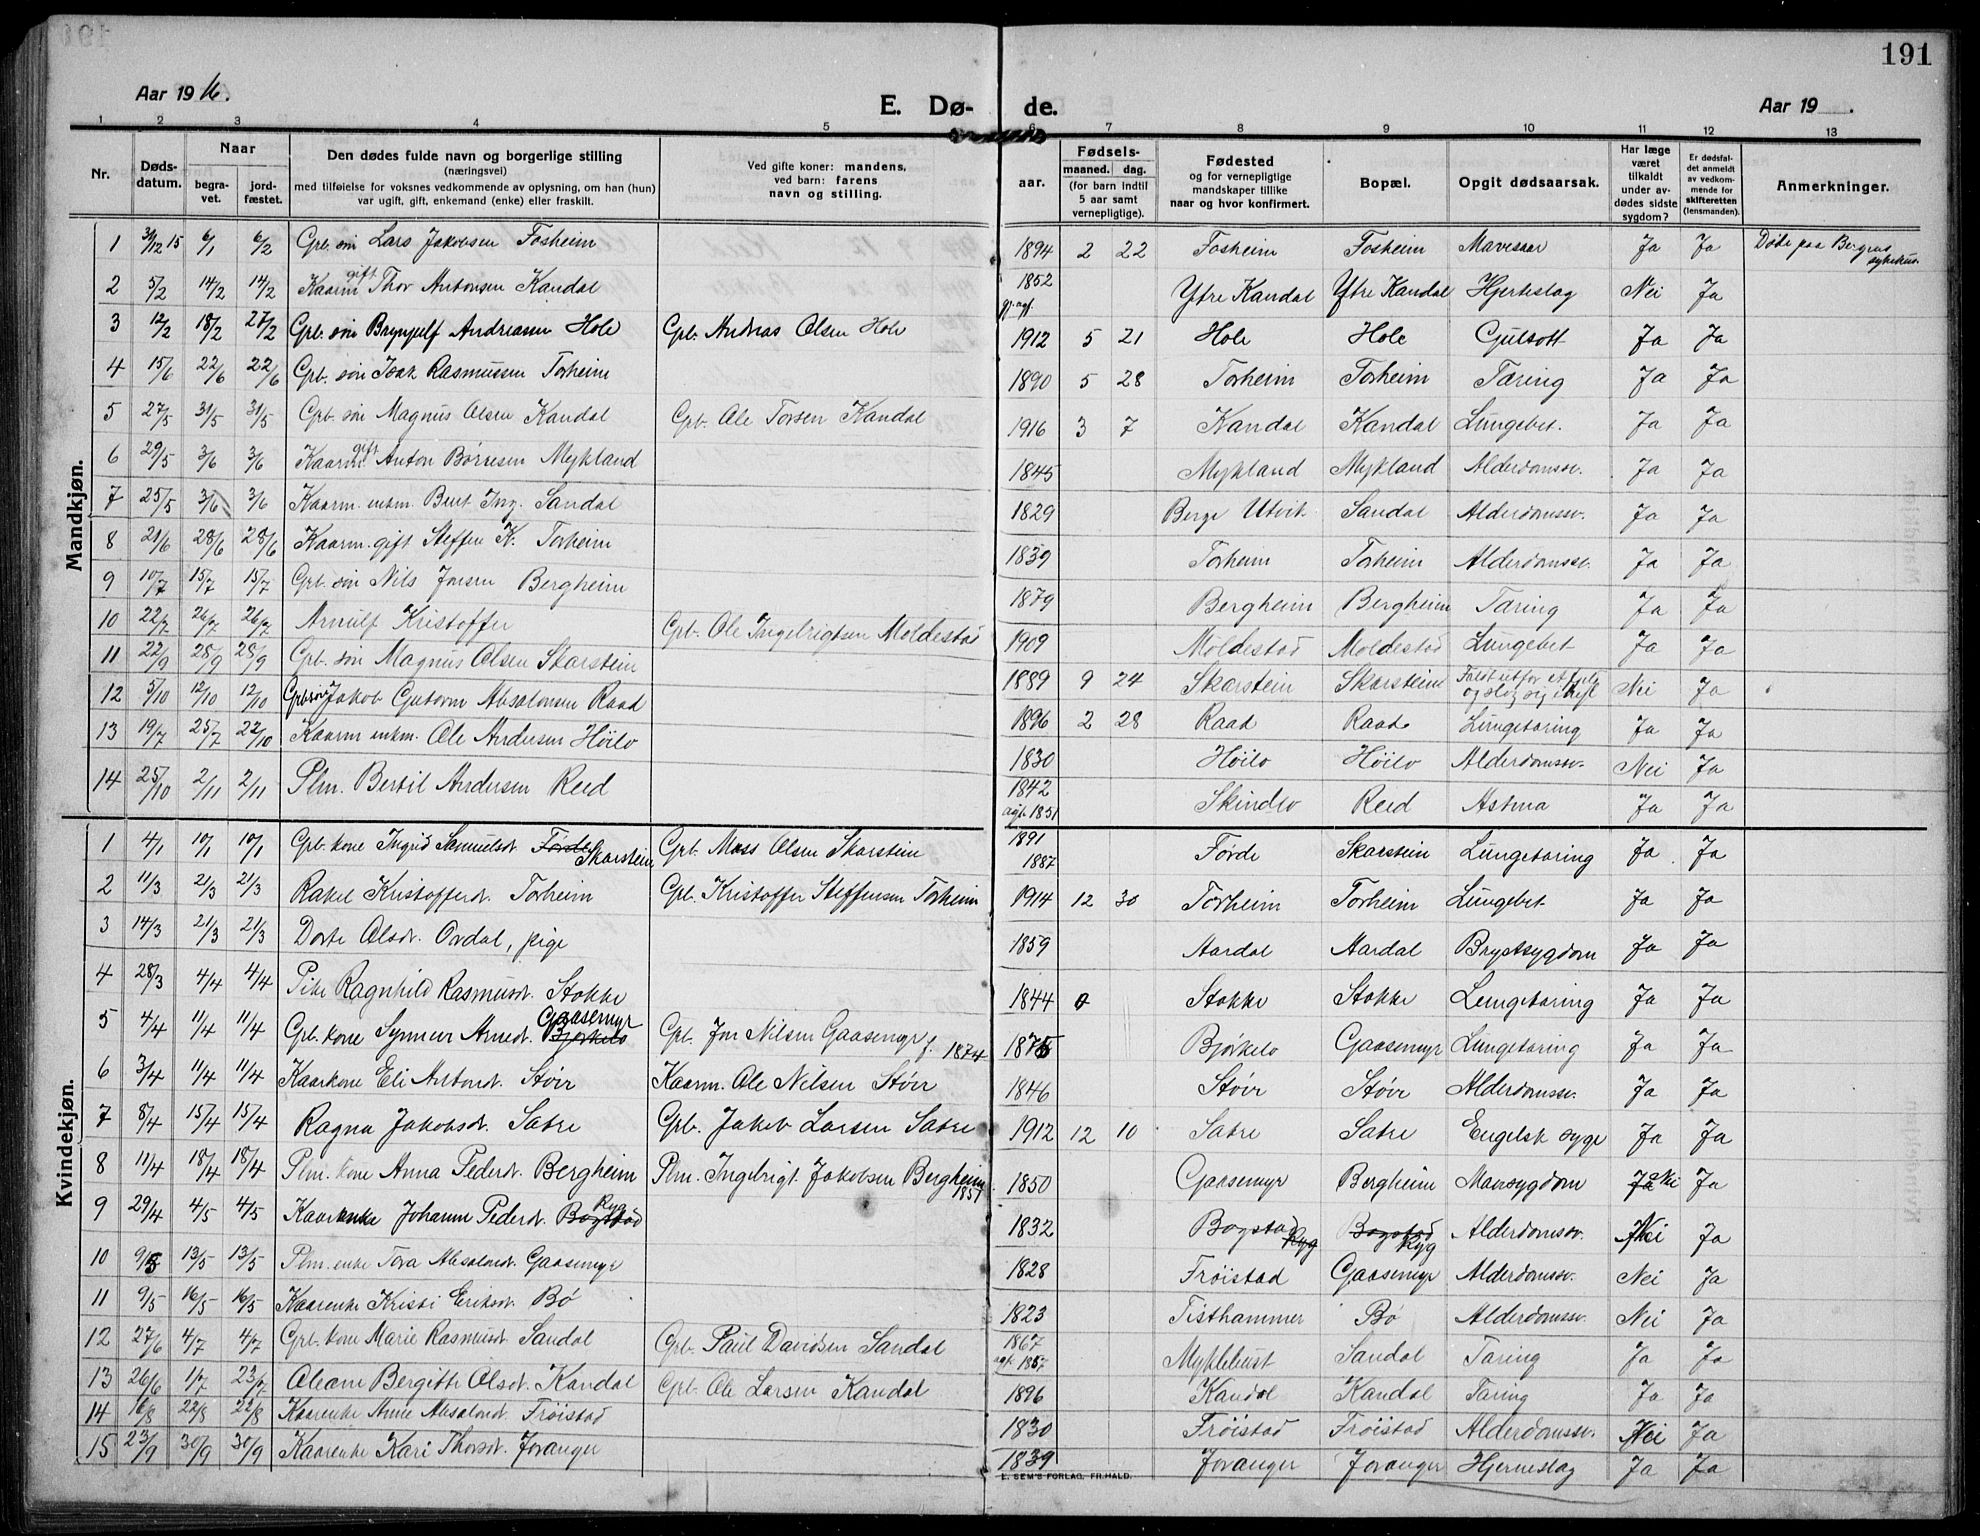 191
Aar 1916. E. Dø- de. Aar 19 .
1 2 3 4 5 6 7 8 9 10 11 12 13
Nr. Døds-datum. Naar begra-vet. jord-fæstet. Den dødes fulde navn og borgerlige stilling (næringsvei) med tilføielse for voksnes vedkommende av oplysning, om han (hun) var ugift, gift, enkemand (enke) eller fraskilt. Ved gifte koner: mandens, ved barn: farens navn og stilling. aar. Fødsels- maaned. dag. (for barn indtil 5 aar samt vernepligtige). Fødested og for vernepligtige mandskaper tillike naar og hvor konfirmert. Bopæl. Opgit dødsaarsak. Har læge været tilkaldt under av-dødes sidste sygdom? Er dødsfal-det anmeldt av vedkom-mende for skifteretten (lensmanden). Anmerkninger.
Mandkjøn.
1 31/12 15 6/1 6/2 Grb. søn Lars Jakobsen Fosheim 1894 2 22 Fosheim Fosheim Mavesaar Ja Ja Døde paa Bergens sykehus.
2 5/2 14/2 14/2 Kaarm gift Thor Antonsen Kandal 1852 Ytre Kandal Ytre Kandal Hjerteslag Nei Ja
3 12/2 18/2 27/2 Grb. søn Brynjulf Andreasen Hole Grb. Andreas Olsen Hole 1912 5 21 Hole Hole Gulsott Ja Ja
4 15/6 22/6 22/6 Grb. søn Isak Rasmussen Torheim 1890 5 28 Torheim Torheim Tæring Ja Ja
5 27/5 31/5 31/5 Grb. søn Magnus Olsen Kandal Grb. Ole Torsen Kandal 1916 3 7 Kandal Kandal Lungebet. Ja Ja
6 29/5 3/6 3/6 Kaarm gift Anton Børresen Mykland 1845 Mykland Mykland Alderdomssv. Ja Ja
7 25/5 3/6 3/6 Kaarm. enkm. Bent Ing. Sandal 1829 Berge Utvik. Sandal Alderdomssv. Ja Ja
8 21/6 28/6 28/6 Kaarm. gift Steffen K. Torheim 1839 Torheim Torheim Alderdomssv. Ja Ja
9 10/7 15/7 15/7 Grb. søn Nils Jonsen Bergheim 1879 Bergheim Bergheim Tæring Ja Ja
10 22/7 26/7 26/7 Arnulf Kristoffer Grb. Ole Ingebrigtsen Moldestad 1909 Moldestad Moldestad Lungebet Ja Ja
11 22/9 28/9 28/9 Grb. søn Magnus Olsen Skarstein 1889 9 24 Skarstein Skarstein Faldt utfor et fjeld og slog sig ihjel Nei Ja
12 5/10 12/10 12/10 Grb. søn Jakob Guttorm Absalonsen Raad 1896 2 28 Raad Raad Lungetæring Ja Ja
13 19/7 25/7 22/10 Kaarm enkm. Ole Andersen Høilo 1830 Høilo Høilo Alderdomssv. Nei Ja
14 25/10 2/11 2/11 Plm. Bertil Andersen Reed 1842 agt. 1851 Skindlo Reed Astma Ja Ja
Kvindekjøn.
1 4/1 10/1 10/1 Grb. kone Ingrid Samuelsdt. Førde Skarstein Grb. Mass Olsen Skarstein 1891 1887 Førde Skarstein Lungetæring Ja Ja
2 11/3 21/3 21/3 Rakel Kristofferdt. Torheim Grb. Kristoffer Steffensen Torheim 1914 12 30 Torheim Torheim Lungebet. Ja Ja
3 14/3 21/3 21/3 Dorte Olsdt. Ordal, pige 1859 Aardal Aardal Brystsygdom Ja Ja
4 28/3 4/4 4/4 Pike Ragnhild Rasmusdt. Stokke 1844 Stokke Stokke Lungetæring Ja Ja
5 4/4 11/4 11/4 Grb. kone Synneve Arnedt. Bjørkelo Gaasemyr Grb. Jon Nilsen Gaasemyr f. 1874 1875 Bjørkelo Gaasemyr Lungetæring Ja Ja
6 3/4 11/4 11/4 Kaarkone Eli Antondt. Støir Kaarm. Ole Nilsen Støir 1846 Støir Støir Alderdomssv. Ja Ja
7 8/4 15/4 15/4 Ragna Jakobsdt. Sætre Grb. Jakob Larsen Sætre 1912 12 10 Sætre Sætre Engelsk syge Ja Ja
8 11/4 18/4 18/4 Plm. kone Anna Pederdt. Bergheim Plm. Ingebrigt Jakobsen Bergheim 1851 1850 Gaasemyr Bergheim Mavesygdom Ja Nei Ja
9 29/4 4/5 4/5 Kaarenke Johanne Pederdt. Bogstad Ryg 1832 Bogstad Ryg Bogstad Ryg Alderdomssv. Nei Ja
10 9/5 13/5 13/5 Plm. enke Tora Absalondt. Gaasemyr 1828 Frøistad Gaasemyr Alderdomssv. Nei Ja
11 9/5 16/5 16/5 Kaarenke Kristi Eriksdt. Bø 1823 Tisthammer Bø Alderdomssv. Nei Ja
12 27/6 4/7 4/7 Grb. kone Marie Rasmusdt. Sandal Grb. Paul Davidsen Sandal 1867 agt. 1857 Myklebust Sandal Tæring Ja Ja
13 26/6 1/7 23/7 Oleane Bergitte Olsdt. Kandal Grb. Ole Larsen Kandal 1896 Kandal Kandal Tæring Ja Ja
14 16/8 22/8 22/8 Kaarenke Anne Absalondt. Frøistad 1830 Frøistad Frøistad Alderdomssv. Nei Ja
15 23/9 30/9 30/9 Kaarenke Kari Thorsdt. Joranger 1839 Joranger Joranger Hjerneslag Ja Ja
E. SEM'S FORLAG, FR.HALD.